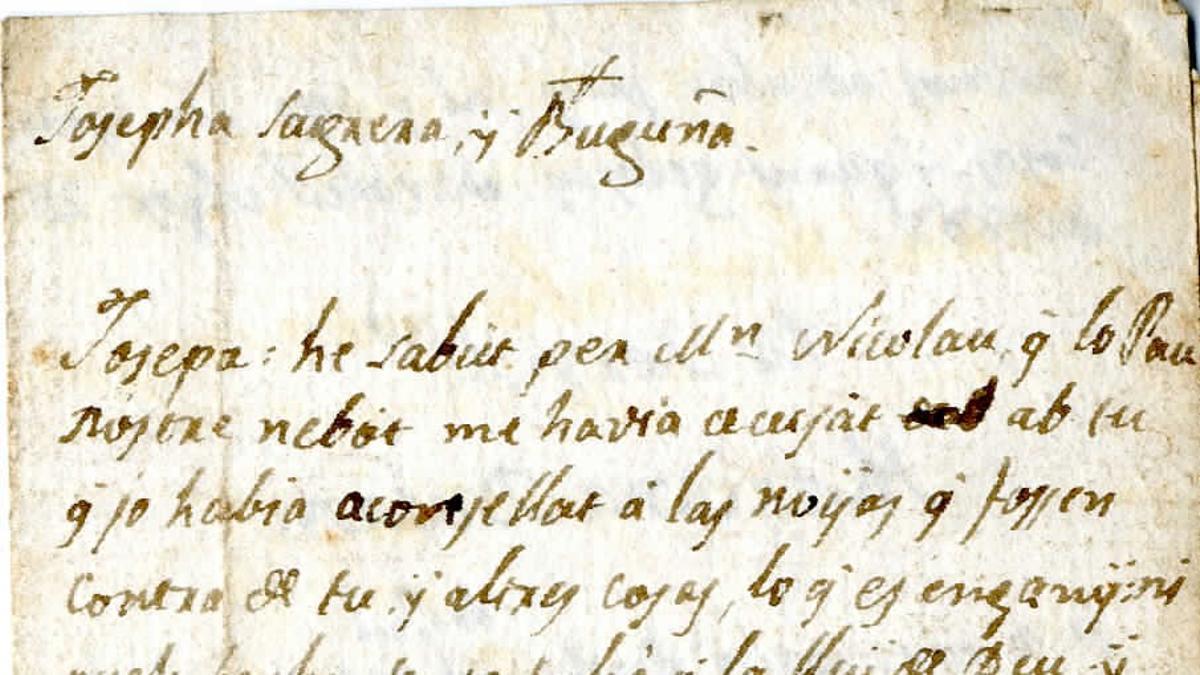 Josepha Sagrera, ÿ Buguña.
Josepa: he sabut per Mn Nicolau, q̃ lo Pau
nostre nebot me havia acusat ab tu
q̃ jo habia aconsellat á las noÿas q̃ fossen
contra de tu, ÿ altres cosas, lo q̃ es enganÿ: ni
la llei de Deu ÿ